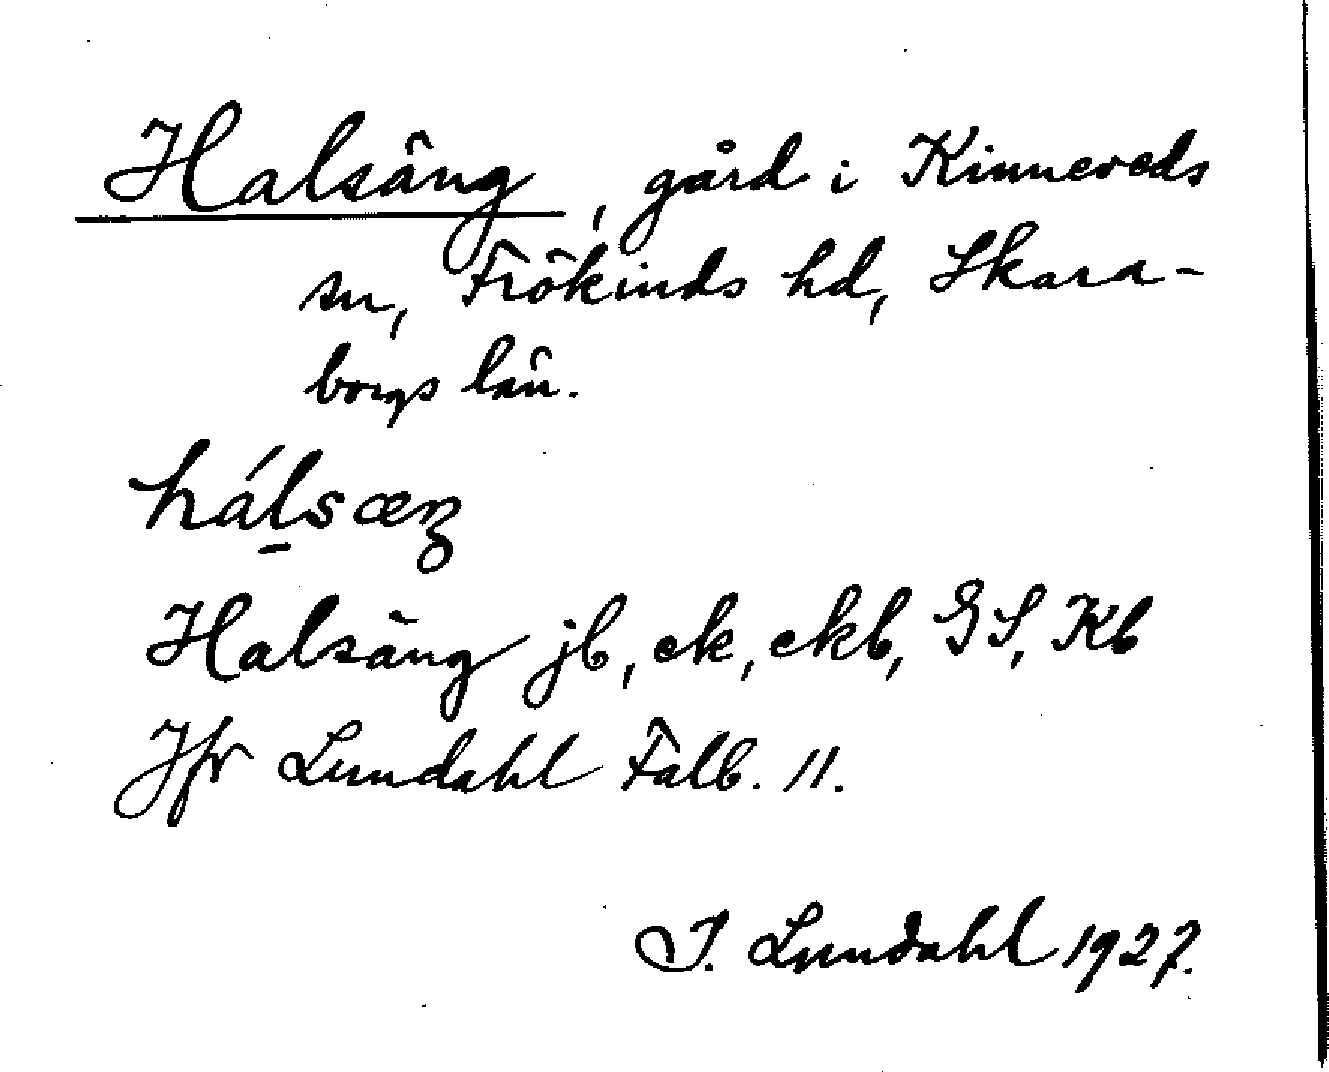 Halsäng, gård i Kinneveds
sn, Frökinds hd, Skara-
borgs län.
hál̠sæŋ
Halsäng jb, ek, ekb, GS, Kb
Jfr Lundahl Falb. 11.
I. Lundahl 1927.